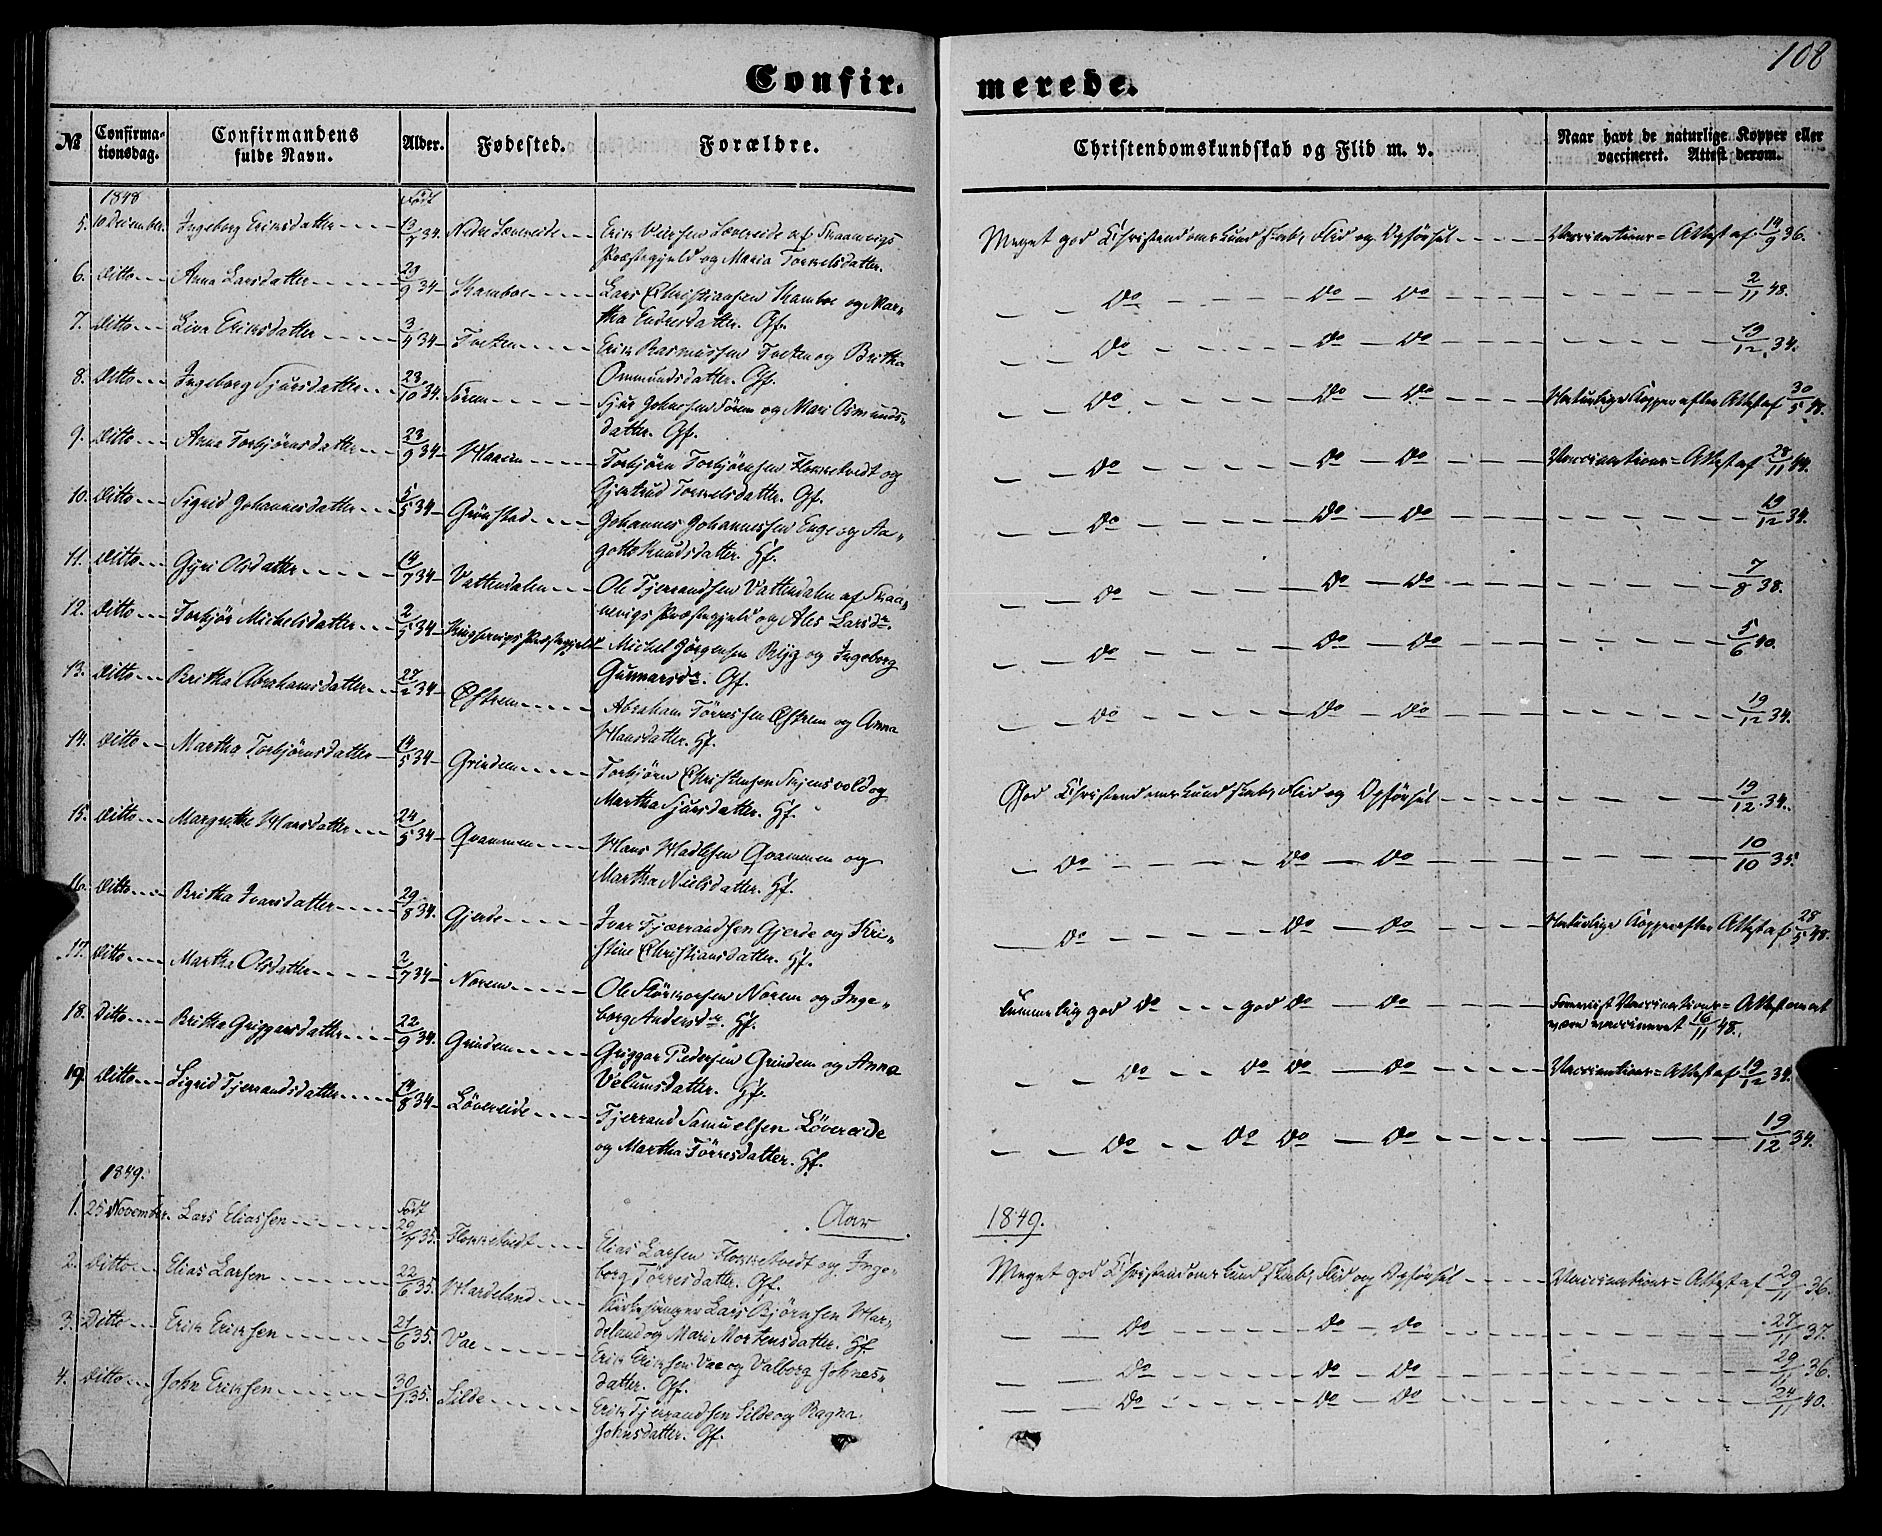 108
Confir- merede.
№ Confirma-tionsdag. Confirmandens fulde Navn. Alder. Fødested. Forældre. Christendomskundskab og Flid m. v. Naar havt de naturlige Kopper eller vaccineret. Attest derom.
1848 Født
5. 10 December. Ingeborg Eriksdatter 34. Nedre af Skaanevigs
Præstegjeld og Maria Torkelsdatter. Meget god Christendomskundskab, Flid og Opførsel Vaccinations=Attest af 14/9 36.
6. Ditto Anna Larsdatter 29/9 34 Kamboe Lars Christiansen Kamboe og Mar=
tha Endresdatter. Gf. Do Do Do 2/11 48.
7. Ditto Eriksdatter 3/4 34 Tveten Erik Rasmussen Tveten og Britha
Ommundsdatter. Gf. Do Do Do 19/12 34.
8. Ditto Ingeborg Sjursdatter 23/10 34. Sørem Sjur Johnesen Sørem og Mari Osmunds=
datter. Gf. Do Do Do Naturlige Kopper efter Attest af 30/5 48.
9. Ditto Anna Torbjørnsdatter 23/9 34 Torbjørn Torbjørnsen Flokketvedt og
Gjertrud Torkelsdatter. Gf. Do Do Do Vaccinations=Attest af 28/11
10. Ditto Sigrid Johannesdatter 5/5 34 Grønstad Johannes Johannessen Enge og Aa=
gotte Knudsdatter. Gf. Do Do Do 19/12 34.
11. Ditto Gyri Olsdatter 14/7 34 Vattendalen Ole Tjerrandsen Vattendalen af Skaa=
nevigs Præstegjeld og Ales Larsdr. Do Do Do 7/8 38.
12. Ditto Torbjør Michelsdatter 2/5 34 Kingservigs Præstegjeld Michel Jørgensen og Ingeborg
Gunnarsdr. Gf. Do Do Do 5/6 40.
13. Ditto Britha Abrahamsdatter 27/2 34 Østrem Abraham Tørressen Østrem og Anna
Hansdatter. Gf. Do Do Do 19/12 34.
14. Ditto Martha Torbjørnsdatter 14/5 34 Grindem Torbjørn Christensen Stjensvold og
Martha Sjursdatter. Gf. God Christendomskundskab, Flid og Opførsel 19/12 34.
15. Ditto Margrethe Hansdatter 24/5 34 Qvammen Hans Hadlesen Qvammen og
Martha Nielsdatter. Gf. Do Do Do 10/10 35.
16. Ditto Britha Ivarsdatter 29/8 34. Gjerde Ivar Tjærrandsen Gjerde og Kri=
stine Christiansdatter. Gf. Do Do Do Naturlige Kopper efter Attest af 28/5 48.
17. Ditto Martha Olsdatter 2/7 34 Norem Ole Størkorsen Norem og Inge=
borg Andersdr. Gf. temmelig god Do god Do Do Vaccinations=Attest om at
være vaccineret 16/11 48.
18. Ditto Britha Griggarsdatter 22/9 34. Grindem Griggar Pedersen Grindem og Anna
Velumsdatter. Gf. Do Do Do Do Vaccinations=Attest af 19/12 34.
19. Ditto Sigrid Tjerrandsdatter 14/8 34 Løvereide Tjerrand Samuelsen Løvereide
og Martha Tørresdatter. Gf. Do Do Do Do 19/12 34.
1849. Født Aar 1849.
1. 25 November. Lars Eliassen 35. Flokketvedt Elias Larsen Flokketvedt og Inge=
borg Tørresdatter. Gf. Meget god Christendomskundskab, Flid og Opførsel Vaccinations=Attest af 29/11 36.
2. Ditto Elias Larsen 22/6 35. Hardeland Kirkesanger Lars Bjørnsen Har=
deland og Mari Mortensdatter. Gf. Do Do Do 27/11 37.
3. Ditto Erik Eriksen 21/6 35. Vae Erik Eriksen Vae og Valborg Johnes=
datter. Gf. Do Do Do 29/11 36.
4. Ditto John Eriksen 30/1 35. Silde Erik Tjerrandsen Silde og Ragna
Johnsdatter. Gf. Do Do Do 24/11 40.